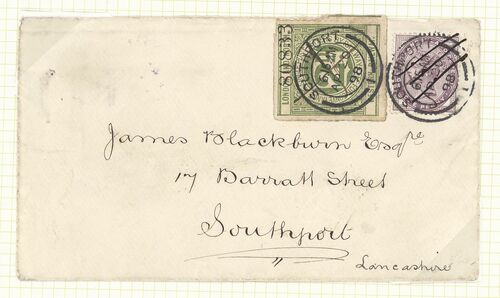 80833
LONDON
SOUTHPORT
98
SOUTHPORT
98
James Blackburn Esqre
17 Barratt Street
Southport
Lancashire